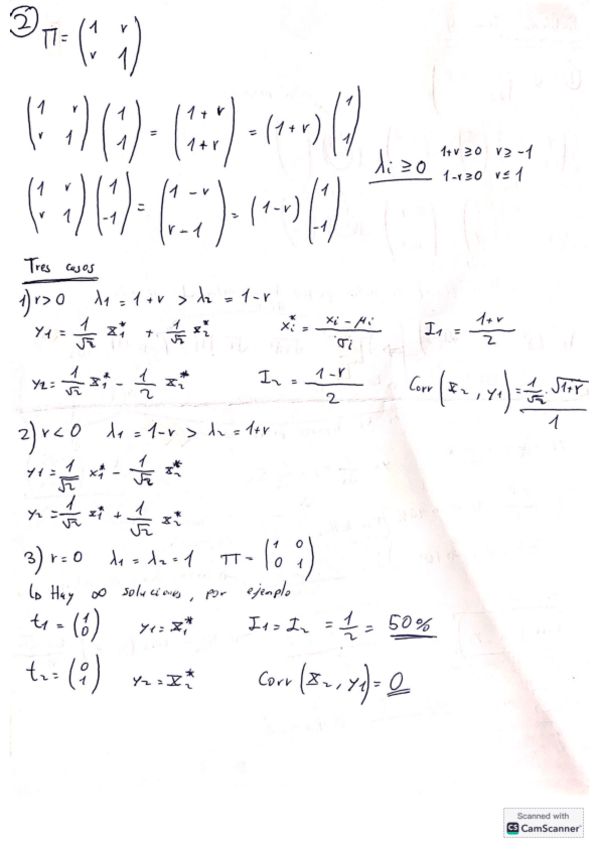 ② Π = (1 r; r 1)
(1 r; r 1) (1; 1) = (1+r; 1+r) = (1+r) (1; 1)
λi ≥ 0 1+r ≥ 0 r ≥ -1
1-r ≥ 0 r ≤ 1
(1 r; r 1) (1; -1) = (1-r; r-1) = (1-r) (1; -1)
Tres casos
1) r>0 λ1 = 1+r > λ2 = 1-r
y1 = 1/√2 X1* + 1/√2 X2* xi* = (xi - μi)/σi I1 = (1+r)/2
y2 = 1/√2 X1* - 1/2 X2* I2 = (1-r)/2 Corr (X2, y1) = (1/√2 · √(1+r))/1
2) r<0 λ1 = 1-r > λ2 = 1+r
y1 = 1/√2 x1* - 1/√2 x2*
y2 = 1/√2 x1* + 1/√2 x2*
3) r=0 λ1 = λ2 = 1 Π = (1 0; 0 1)
↳ Hay ∞ soluciones, por ejemplo
t1 = (1; 0) y1 = X1* I1 = I2 = 1/2 = 50%
t2 = (0; 1) y2 = X2* Corr (X2, y1) = 0
Scanned with
CS CamScanner